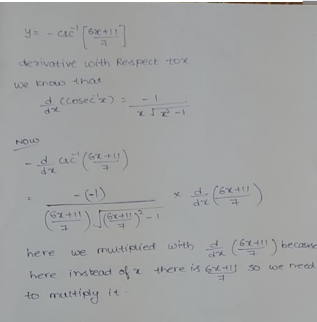 y = - csc⁻¹ [6x+11/7]
derivative with Respect to x
we know that
d/dx (cosec⁻¹x) = -1 / x √x²-1
Now
- d/dx csc⁻¹ (6x+11/7)
= -(-1) / (6x+11/7) √(6x+11/7)² - 1 × d/dx (6x+11/7)
here we multiplied with d/dx (6x+11/7) because
here instead of x there is 6x+11/7 so we need
to multiply it.